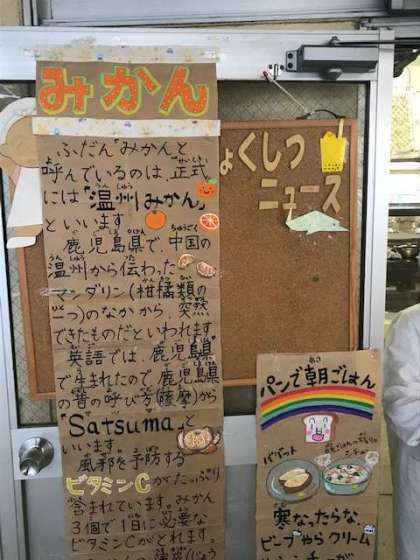 みかん
ふだん"みかんと
呼んでいるのは、正式
には「温州みかん」
といいます。
鹿児島県で、中国の
温州から伝わった
マンダリン(柑橘類の
一つ)のなかから、突然
できたものだといわれます。
英語では、鹿児島県
で生まれたので、鹿児島県
の昔の呼び方(薩摩)から
"Satsuma"と
いいます。
風邪を予防する
ビタミンCがたっぷり
含まれています。みかん
3個で1日に必要な
ビタミンCがとれます。
ょくしつ
ニュース
パンで朝ごはん
寒なったらな、
ビーフやらクリーム